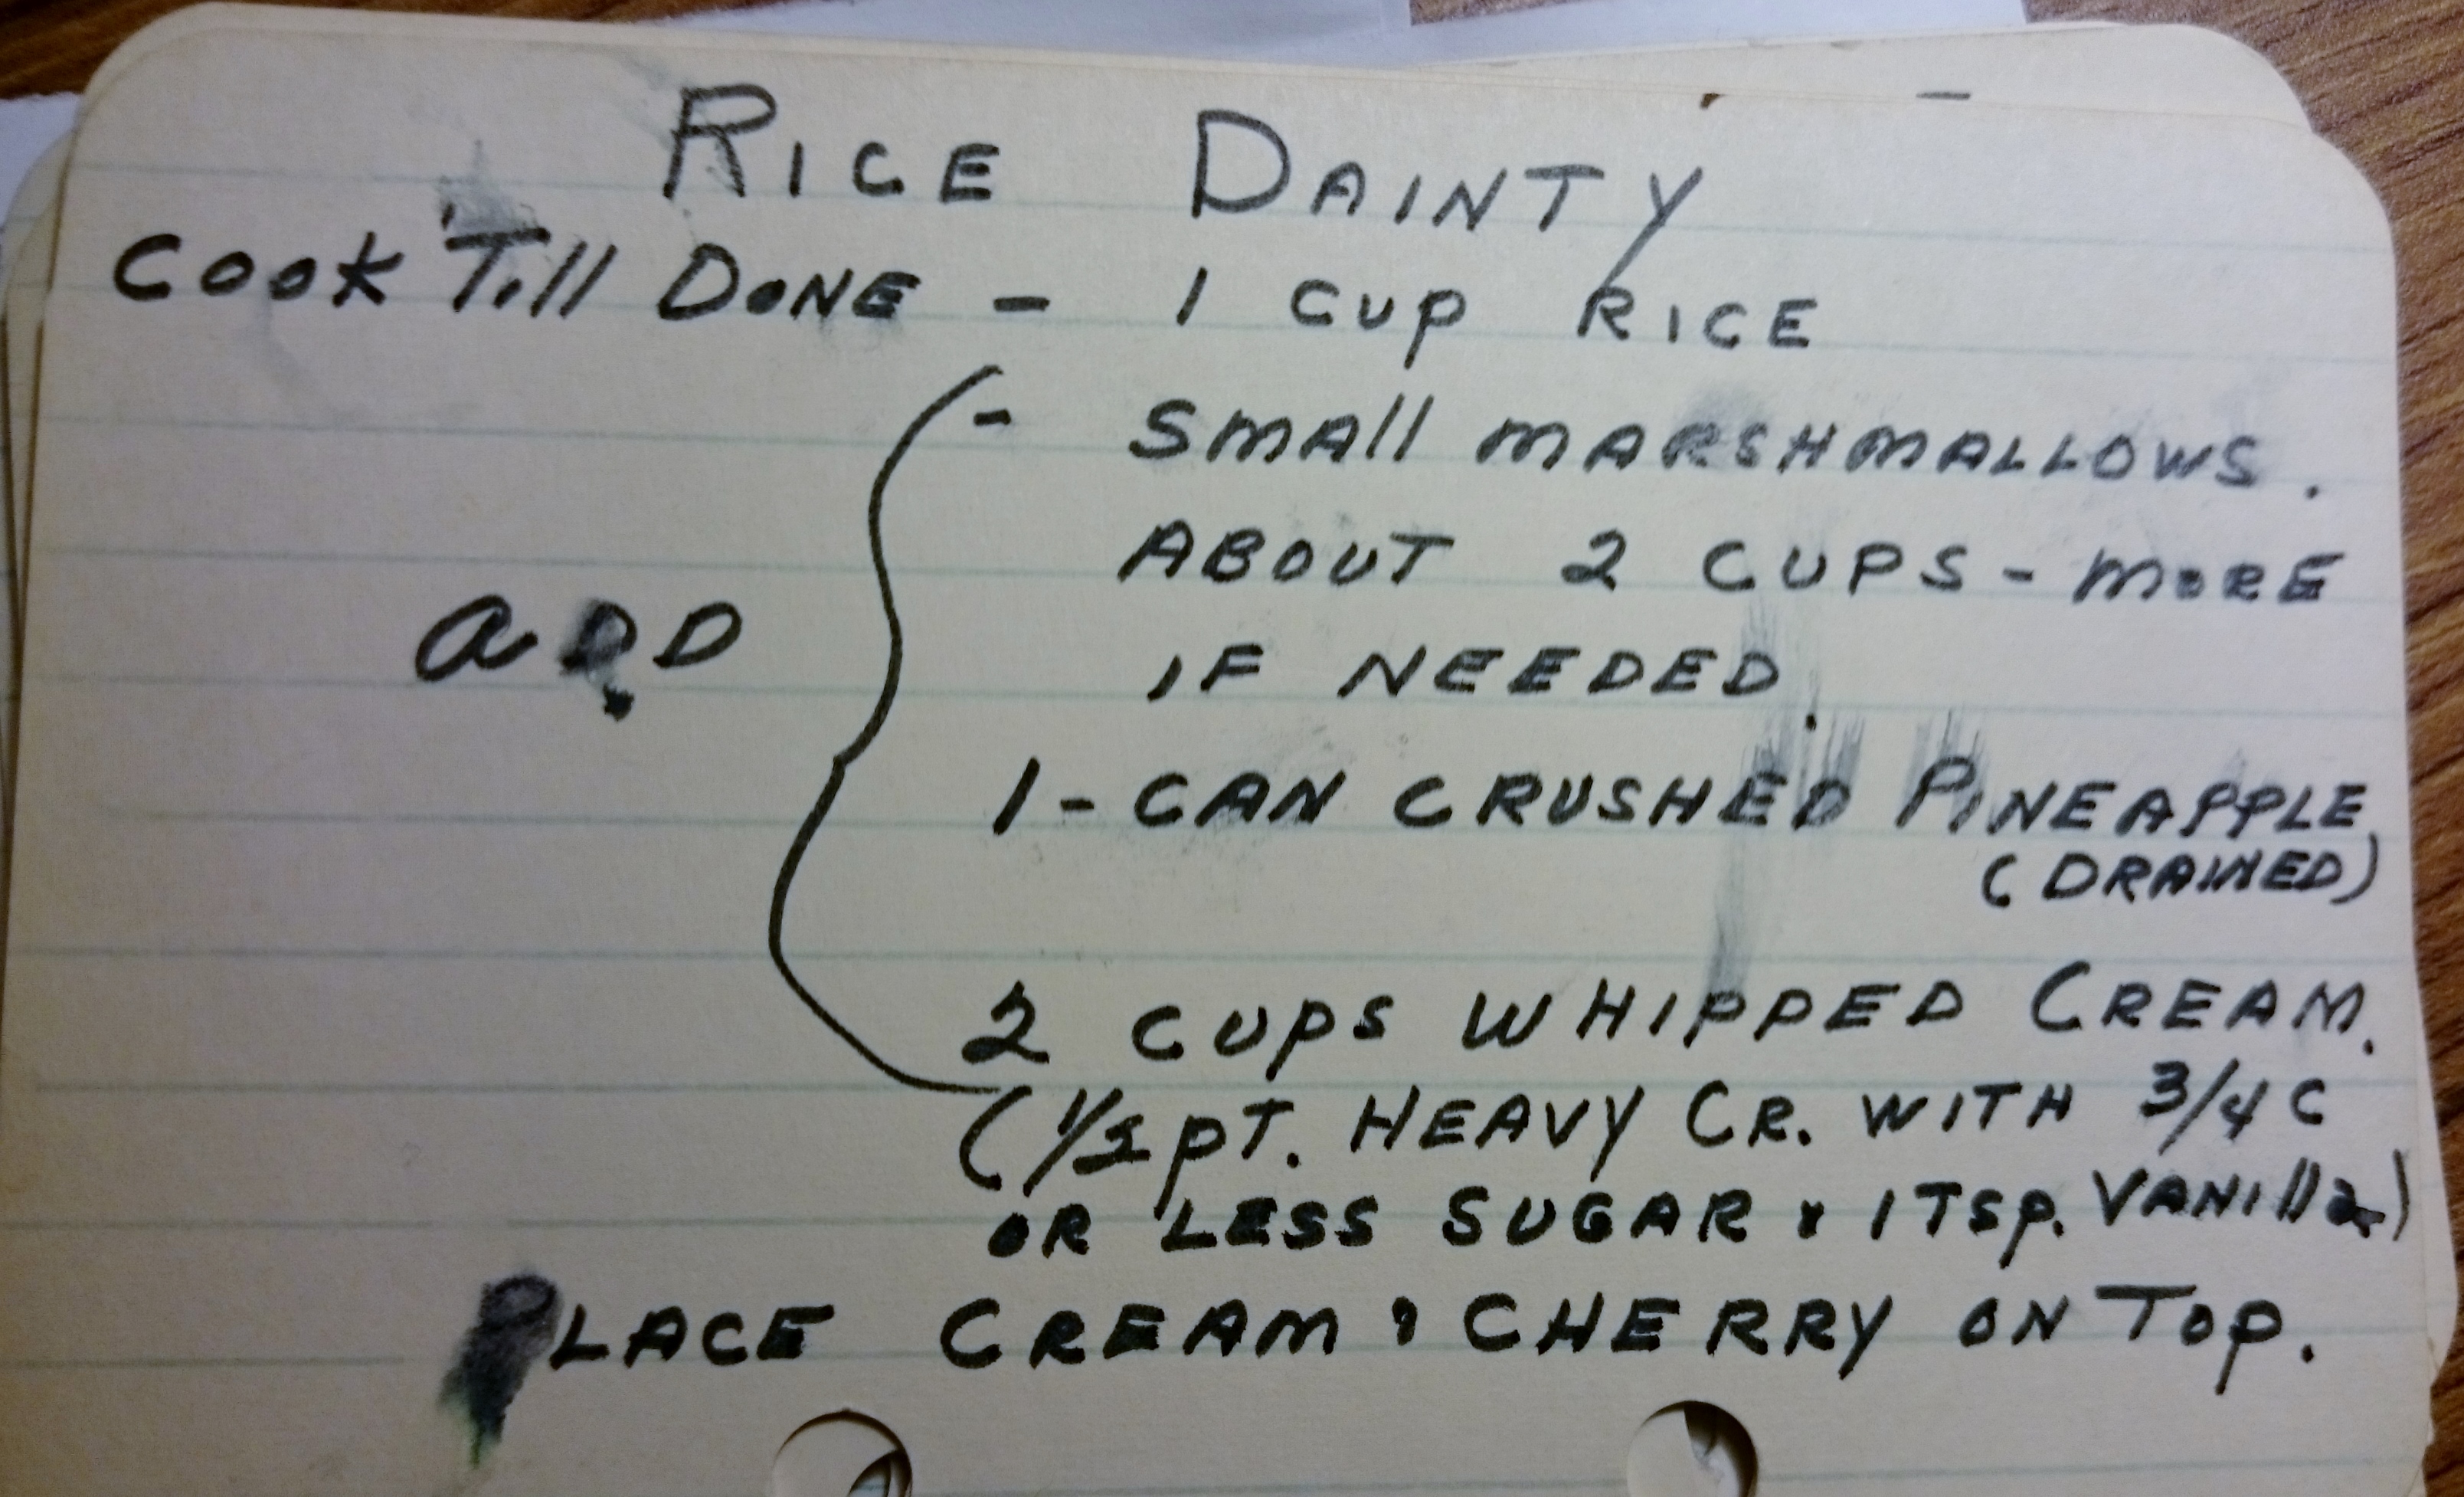 RICE DAINTY
COOK TILL DONE - 1 CUP RICE
- SMALL MARSHMALLOWS.
ABOUT 2 CUPS - MORE
IF NEEDED.
ADD
1 - CAN CRUSHED PINEAPPLE
(DRAINED)
2 CUPS WHIPPED CREAM.
(1/2 PT. HEAVY CR. WITH 3/4 C
OR LESS SUGAR & 1 TSP. VANILLA)
PLACE CREAM & CHERRY ON TOP.